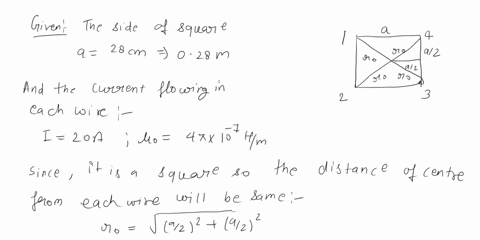 Given: The side of square
a = 28 cm => 0.28 m
And the current flowing in
each wire :-
I = 20A ; μ₀ = 4π×10⁻⁷ H/m
Since, it is a square so the distance of centre
from each wire will be same:-
r₀ = √((a/2)² + (a/2)²)
1 a 4
r₀ r₀ a/2
a/2
r₀ r₀
2 3